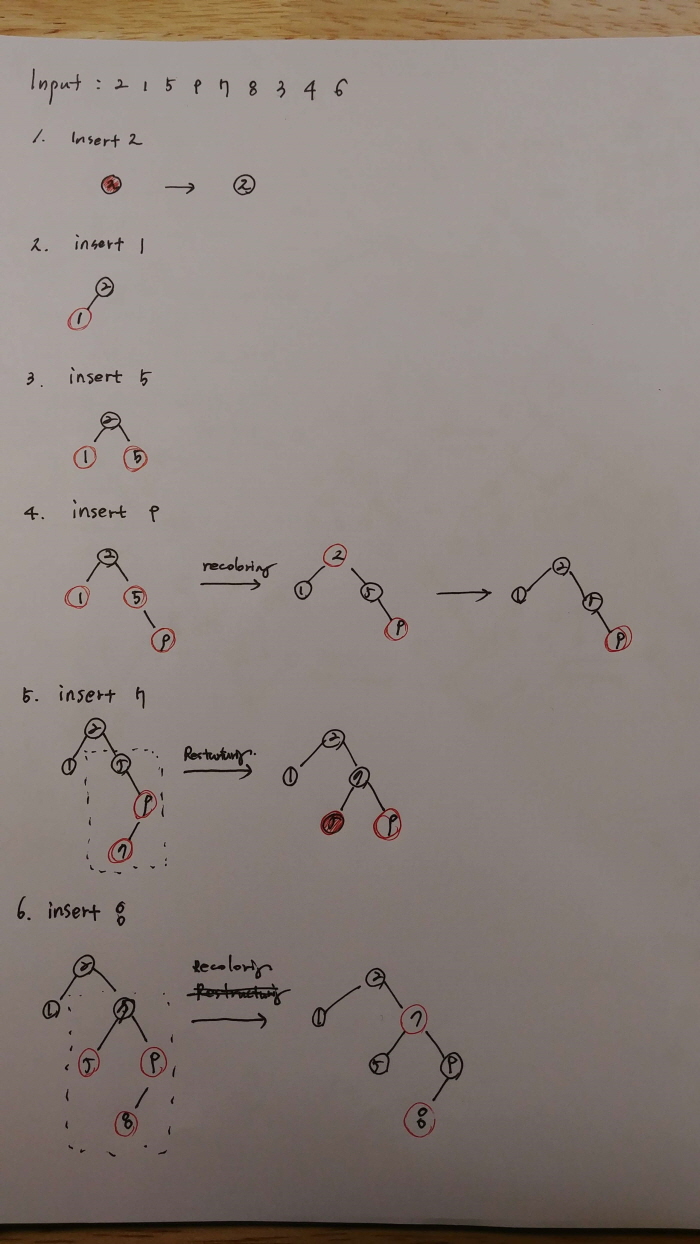 Input : 2 1 5 9 7 8 3 4 6
1. Insert 2
2 → 2
2. insert 1
2
1
3. insert 5
2
1 5
4. insert 9
2 recoloring 2 2
1 5 1 5 1 5
9 9 9
5. insert 7
2 Restructuring. 2
1 5 1 7
9 5 9
7
6. insert 8
2 recoloring 2
Restructuring
1 1 7
5 9 5 9
8 8